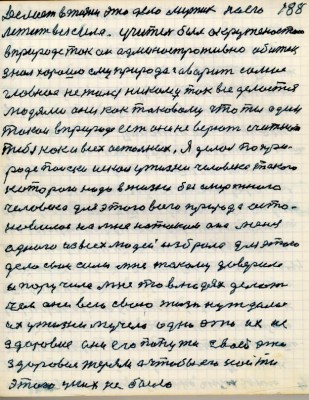 188
делает в жизни это дело мужик после
летит вся сила. учител был окружен этою
в природе так он административно обитец
знал хорошо ему природа гаварит самое
главное не жалея никому так все делается
людями они как таковому что ты один
такой в природе есть они не верют считают
тебя как и всех остальних. Я делал по при-
роде поиски искал у жизни человека такого
которого надо в жизни бессмертного
человека для этого всего природа оста-
новилась на мне на таком она меня
одного из всех людей избрала для этого
дела свои силы мне такому доверила
и поручила мне это в людях делать
чем они всю свою жизнь нуждались
их у жизни мучело одно это их не
здоровие они его по пути своей это
здоровие теряли а чтобы его найти
этого у них не было